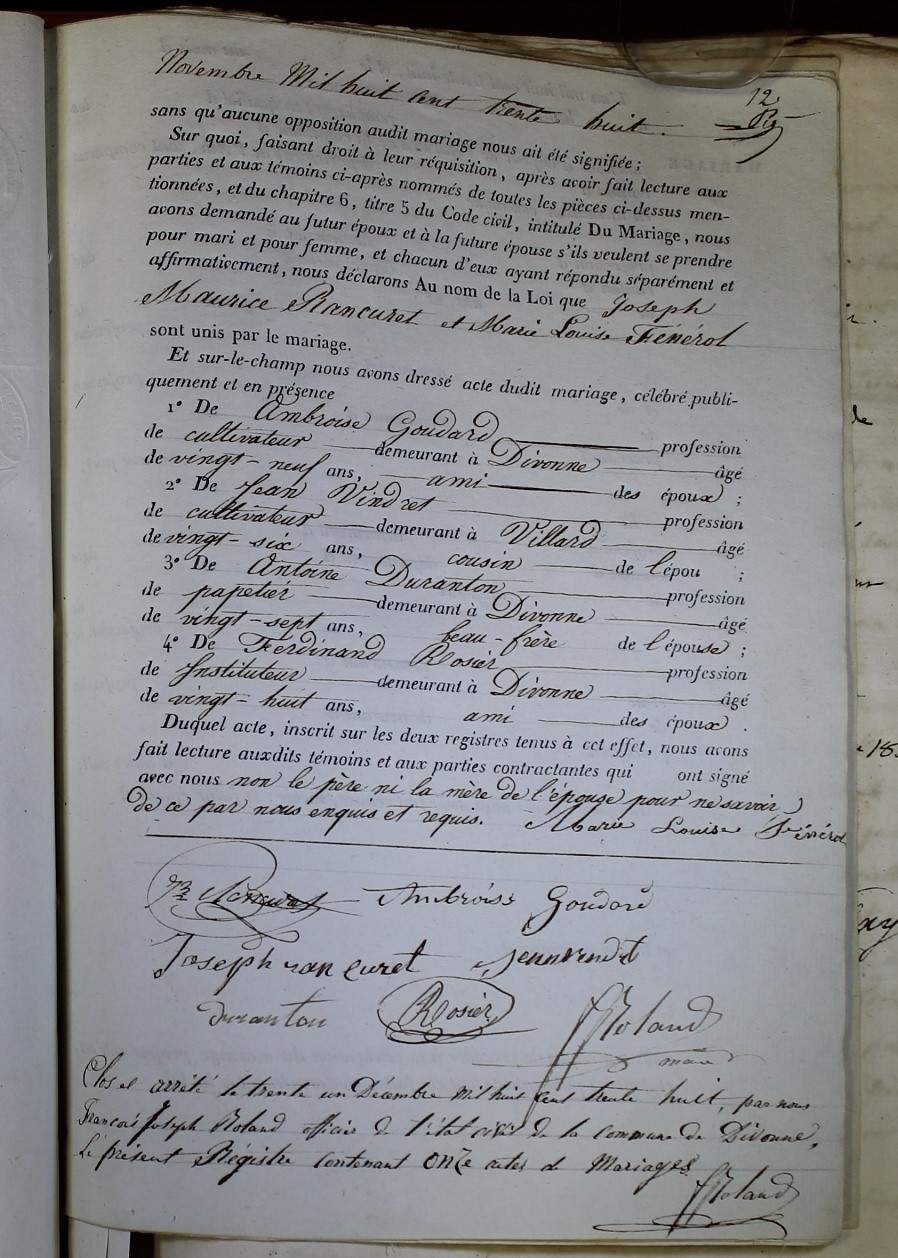 Novembre Mil huit cent trente huit.
12
sans qu'aucune opposition audit mariage nous ait été signifiée ;
Sur quoi, faisant droit à leur réquisition, après avoir fait lecture aux
parties et aux témoins ci-après nommés de toutes les pièces ci-dessus men-
tionnées, et du chapitre 6, titre 5 du Code civil, intitulé Du Mariage, nous
avons demandé au futur époux et à la future épouse s'ils veulent se prendre
pour mari et pour femme, et chacun d'eux ayant répondu séparément et
affirmativement, nous déclarons Au nom de la Loi que Joseph
Maurice Rancuret et Marie Louise Fénérol
sont unis par le mariage.
Et sur-le-champ nous avons dressé acte dudit mariage, célébré publi-
quement et en présence
1° De Ambroise Goudard profession
de cultivateur demeurant à Divonne âgé
de vingt-neuf ans, ami des époux ;
2° De Jean Vindret profession
de cultivateur demeurant à Villard âgé
de vingt-six ans, cousin de l'épou ;
3° De Antoine Duranton profession
de papetier demeurant à Divonne âgé
de vingt-sept ans, beau-frère de l'épouse ;
4° De Ferdinand Rosier profession
de Instituteur demeurant à Divonne âgé
de vingt-huit ans, ami des époux.
Duquel acte, inscrit sur les deux registres tenus à cet effet, nous avons
fait lecture auxdits témoins et aux parties contractantes qui ont signé
avec nous non le père ni la mère de l'épouse pour ne savoir
de ce par nous enquis et requis. Marie Louise Fénérol
Ambroise Goudard
Joseph rancuret
duranton Rosier Roland
maire
Clos et arrêté le trente un Décembre Mil huit cent trente huit, par nous
François Joseph Roland officier de l'état civil de la commune de Divonne,
Le présent Régistre contenant onze actes de Mariages.
Roland